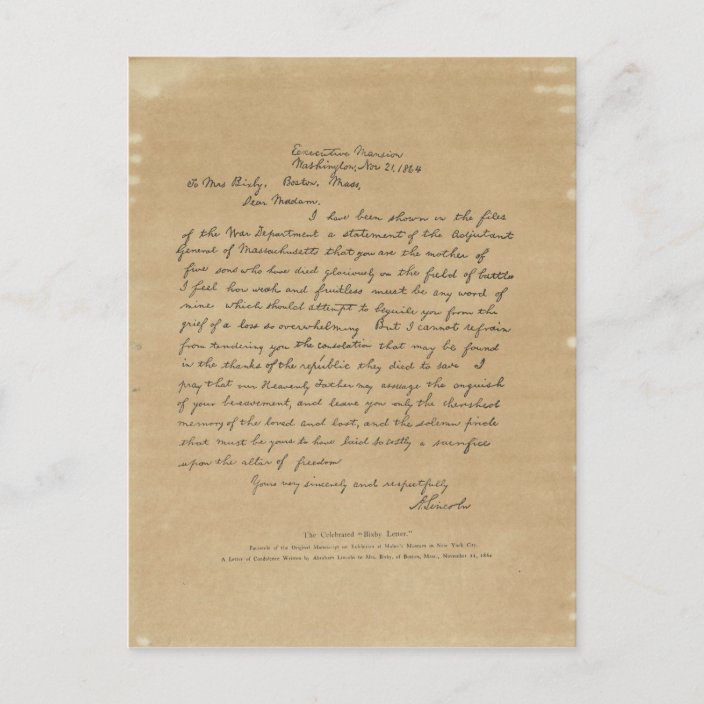 Executive Mansion
Washington, Nov 21. 1864
To Mrs Bixby, Boston, Mass,
Dear Madam.
I have been shown in the files
of the War Department a statement of the Adjutant
General of Massachusetts that you are the mother of
five sons who have died gloriously on the field of battle
I feel how weak and fruitless must be any word of
mine which should attempt to beguile you from the
grief of a loss so overwhelming But I cannot refrain
from tendering you the consolation that may be found
in the thanks of the republic they died to save I
pray that our Heavenly Father may assuage the anguish
of your bereavement, and leave you only the cherished
memory of the loved and lost, and the solemn pride
that must be yours to have laid so costly a sacrifice
upon the altar of freedom
Yours very sincerely and respectfully
A. Lincoln
The Celebrated "Bixby Letter."
Facsimile of the Original Manuscript on Exhibition at Huber's Museum in New York City.
A Letter of Condolence Written by Abraham Lincoln to Mrs. Bixby, of Boston, Mass., November 21, 1864